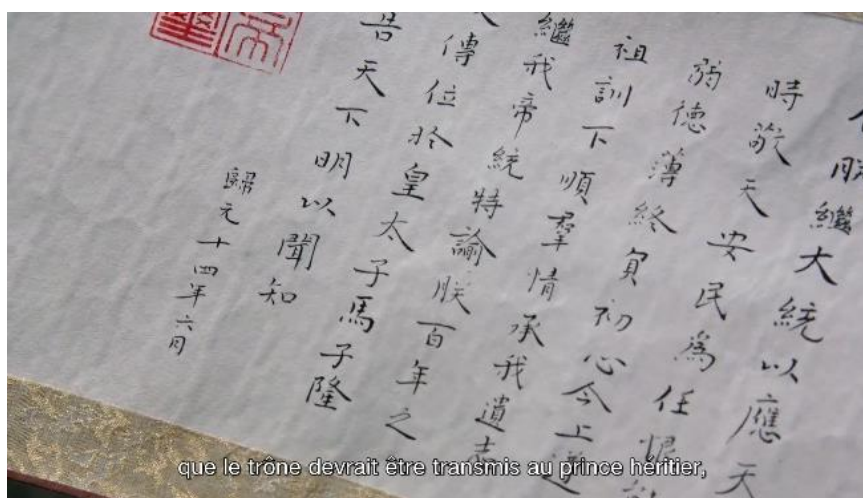 朕繼大統以應天
時敬天安民為任
弱德薄終負初心今上遵
祖訓下順羣情承我遺志
繼我帝統特諭朕百年之
傳位於皇太子馬子隆
告天下明以聞知
歸元十四年六月
que le trône devrait être transmis au prince héritier,